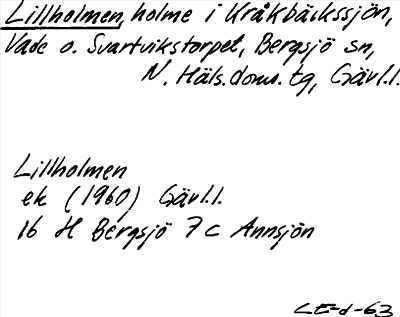 Lillholmen, holme i Kråkbäckssjön,
Vade o. Svartvikstorpet, Bergsjö sn,
N. Häls. doms. tg, Gävl.l.
Lillholmen
ek (1960) Gävl.l.
16 H Bergsjö 7 c Annsjön
LE-d-63